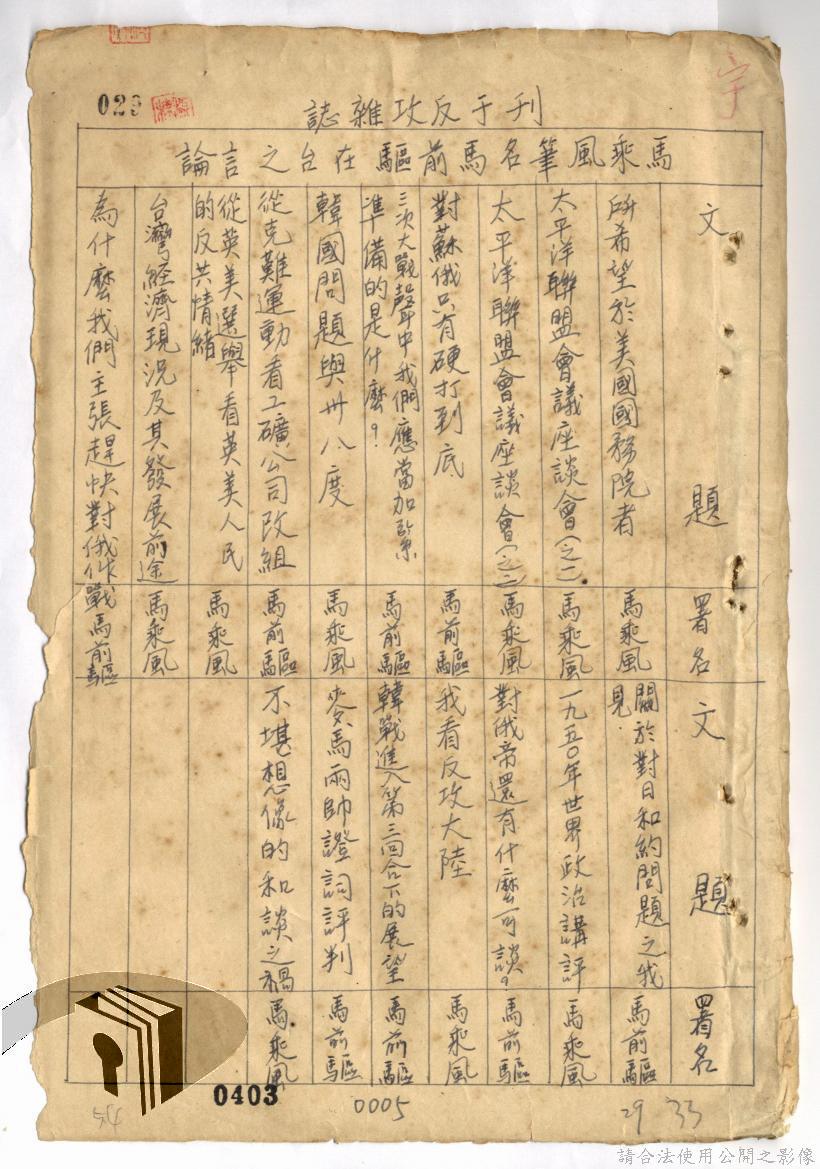 029
刊于反攻雜誌
馬乘風筆名馬前驅在台之言論
文題
署名
文題
署名
所希望於美國國務院者
馬乘風
關於對日和約問題之我
見
馬前驅
太平洋聯盟會議座談會(之一)
馬乘風
一九五〇年世界政治講評
馬乘風
太平洋聯盟會議座談會(之二)
馬乘風
對俄帝還有什麼可談?
馬前驅
對蘇俄只有硬打到底
馬前驅
我看反攻大陸
馬乘風
三次大戰聲中我們應當加緊
準備的是什麼?
馬前驅
韓戰進入第三回合下的展望
馬前驅
韓國問題與卅八度
馬乘風
麥馬兩帥證詞評判
馬前驅
從克難運動看工礦公司改組
馬前驅
不堪想像的和談之禍
馬乘風
從英美選舉看英美人民
的反共情緒
馬乘風
台灣經濟現況及其發展前途
馬乘風
為什麼我們主張趕快對俄作戰
馬前驅
0403
0005
29
33
請合法使用公開之影像